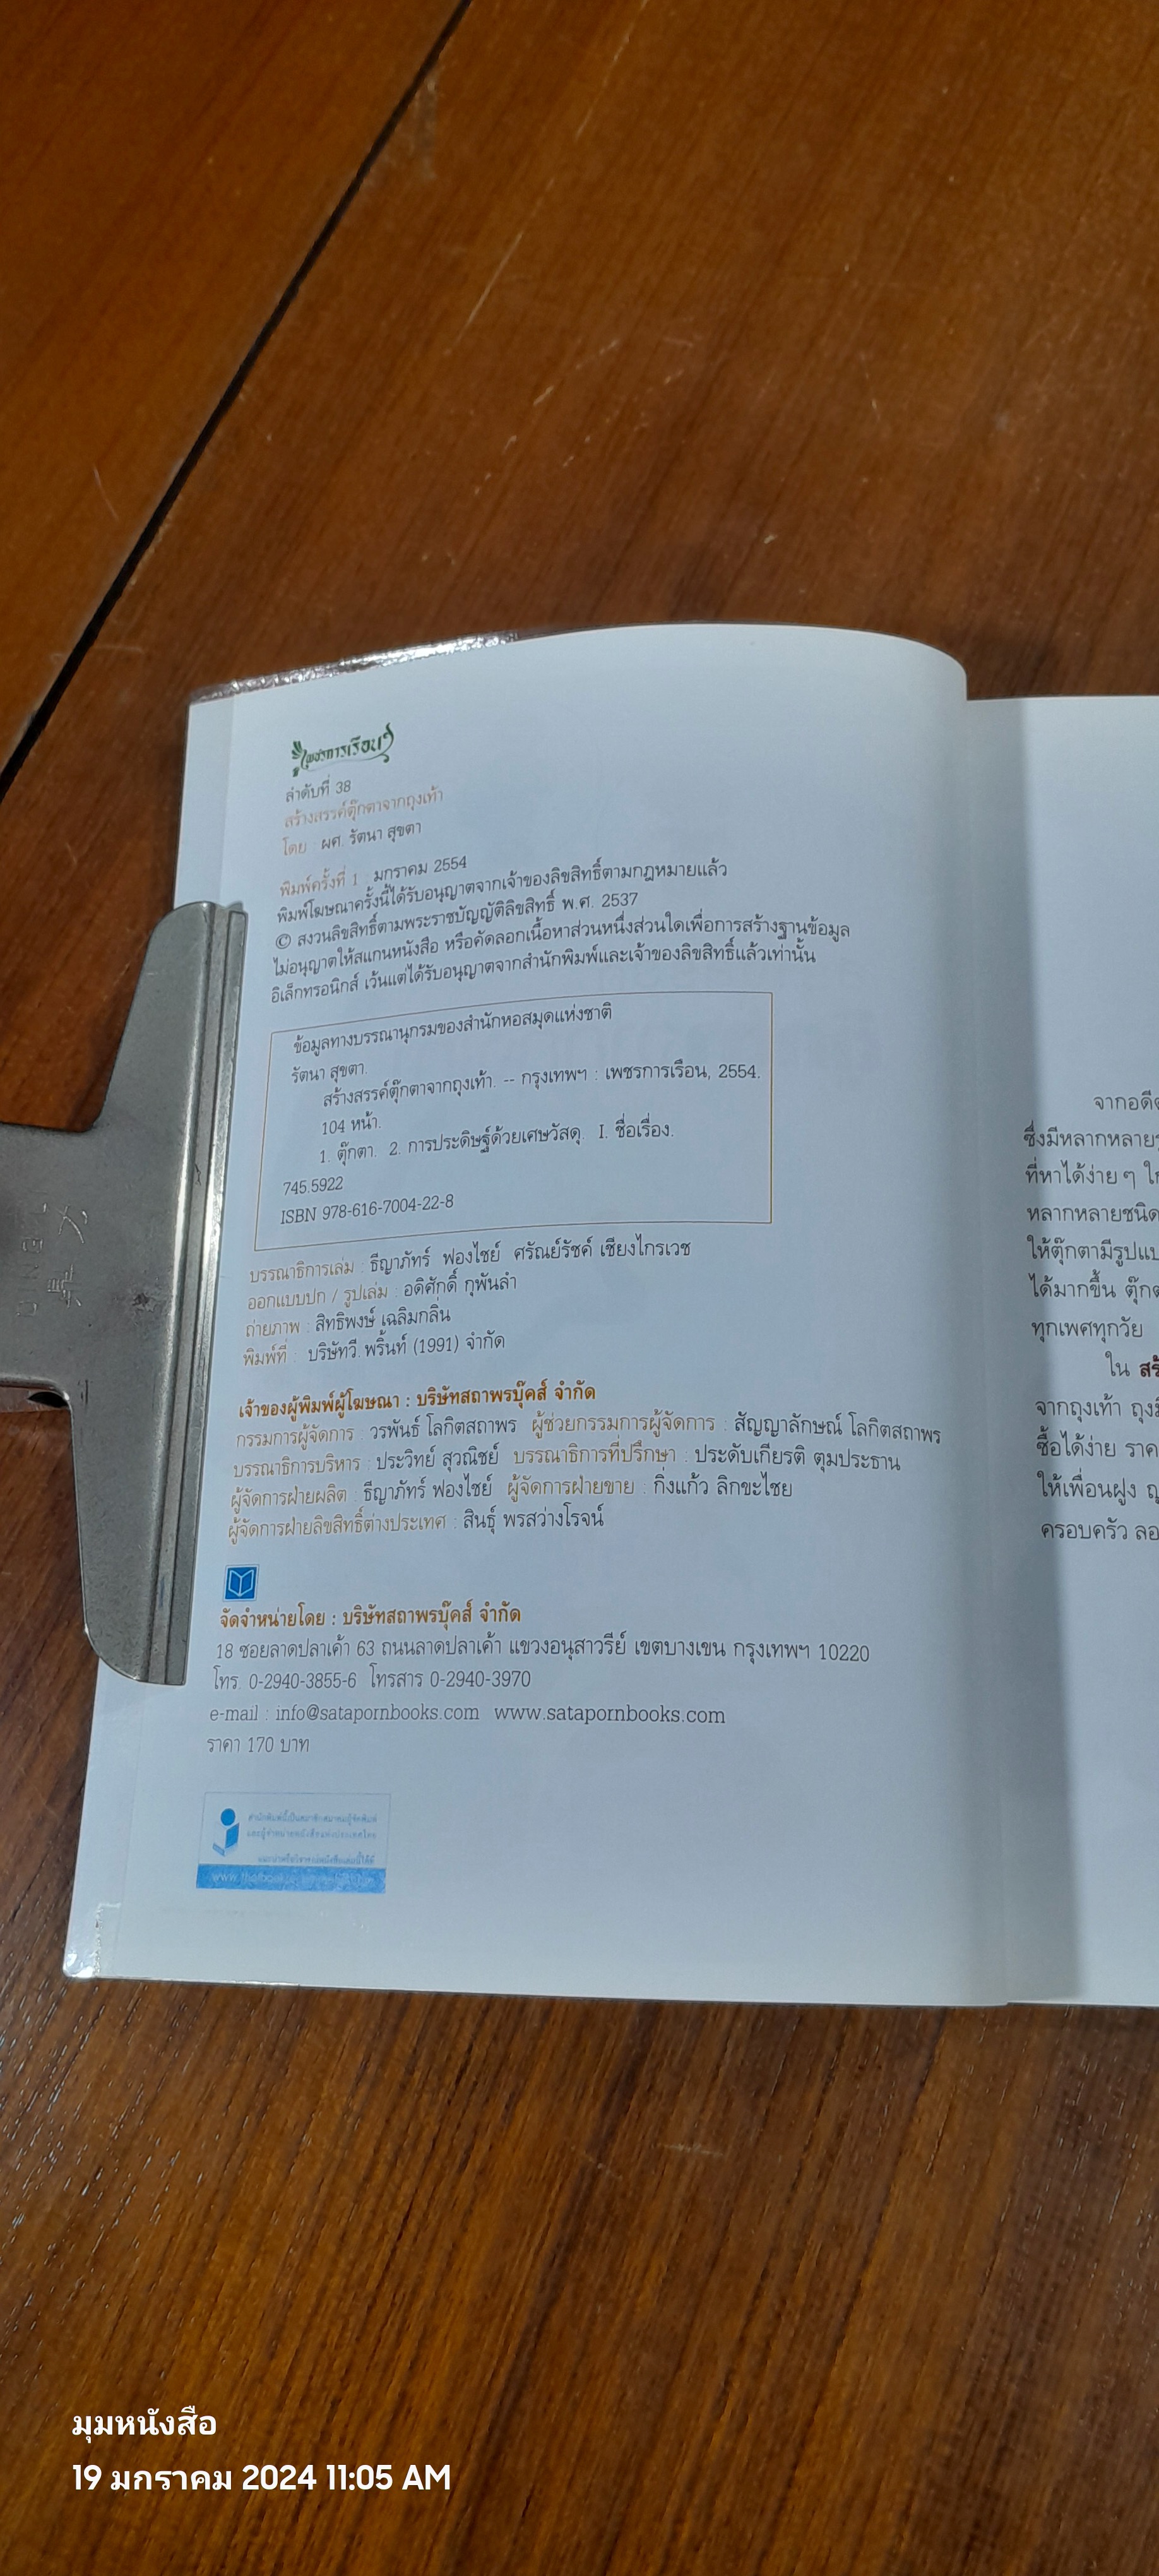 เพชรการเรือน
ลำดับที่ 38
สร้างสรรค์ตุ๊กตาจากถุงเท้า
โดย : ผศ. รัตนา สุขตา
พิมพ์ครั้งที่ 1 : มกราคม 2554
พิมพ์โฆษณาครั้งนี้ได้รับอนุญาตจากเจ้าของลิขสิทธิ์ตามกฎหมายแล้ว
© สงวนลิขสิทธิ์ตามพระราชบัญญัติลิขสิทธิ์ พ.ศ. 2537
ไม่อนุญาตให้สแกนหนังสือ หรือคัดลอกเนื้อหาส่วนหนึ่งส่วนใดเพื่อการสร้างฐานข้อมูล
อิเล็กทรอนิกส์ เว้นแต่ได้รับอนุญาตจากสำนักพิมพ์และเจ้าของลิขสิทธิ์แล้วเท่านั้น
ข้อมูลทางบรรณานุกรมของสำนักหอสมุดแห่งชาติ
รัตนา สุขตา.
สร้างสรรค์ตุ๊กตาจากถุงเท้า. -- กรุงเทพฯ : เพชรการเรือน, 2554.
104 หน้า.
1. ตุ๊กตา. 2. การประดิษฐ์ด้วยเศษวัสดุ. I. ชื่อเรื่อง.
745.5922
ISBN 978-616-7004-22-8
บรรณาธิการเล่ม : ธีญาภัทร์ ฟองไชย์ ศรัณย์รัชค์ เชียงไกรเวช
ออกแบบปก / รูปเล่ม : อดิศักดิ์ กุพันลำ
ถ่ายภาพ : สิทธิพงษ์ เฉลิมกลิ่น
พิมพ์ที่ : บริษัทวี.พริ้นท์ (1991) จำกัด
เจ้าของผู้พิมพ์ผู้โฆษณา : บริษัทสถาพรบุ๊คส์ จำกัด
กรรมการผู้จัดการ : วรพันธ์ โลกิตสถาพร ผู้ช่วยกรรมการผู้จัดการ : สัญญาลักษณ์ โลกิตสถาพร
บรรณาธิการบริหาร : ประวิทย์ สุวณิชย์ บรรณาธิการที่ปรึกษา : ประดับเกียรติ ตุมประธาน
ผู้จัดการฝ่ายผลิต : ธีญาภัทร์ ฟองไชย์ ผู้จัดการฝ่ายขาย : กิ่งแก้ว ลิกขะไชย
ผู้จัดการฝ่ายลิขสิทธิ์ต่างประเทศ : สินธุ์ พรสว่างโรจน์
จัดจำหน่ายโดย : บริษัทสถาพรบุ๊คส์ จำกัด
18 ซอยลาดปลาเค้า 63 ถนนลาดปลาเค้า แขวงอนุสาวรีย์ เขตบางเขน กรุงเทพฯ 10220
โทร. 0-2940-3855-6 โทรสาร 0-2940-3970
e-mail : info@satapornbooks.com www.satapornbooks.com
ราคา 170 บาท
สำนักพิมพ์นี้เป็นสมาชิกสมาคมผู้จัดพิมพ์
และผู้จำหน่ายหนังสือแห่งประเทศไทย
จากอดีต
ซึ่งมีหลากหลาย
ที่หาได้ง่าย ๆ
หลากหลายชนิด
ให้ตุ๊กตามีรูปแบ
ได้มากขึ้น ตุ๊กต
ทุกเพศทุกวัย
ใน สร้
จากถุงเท้า ถุงมื
ซื้อได้ง่าย ราค
ให้เพื่อนฝูง ญ
ครอบครัว ลอ
มุมหนังสือ
19 มกราคม 2024 11:05 AM